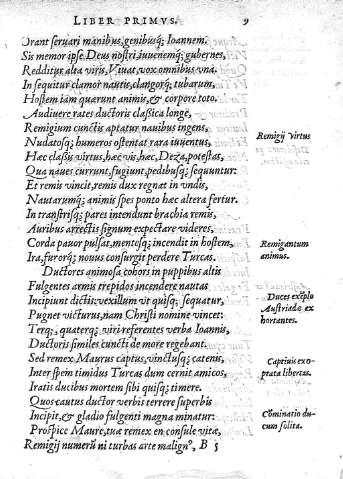 LIBER PRIMVS. 9
Orant seruari manibus, genibusq; Ioannem.
Sis memor ipse Deus nostri, iuuenemq; gubernes,
Redditur alta viris, Viuat, vox omnibus vna.
Insequitur clamor nautis, clangorq; tubarum,
Hostem tàm quærunt animis, & corpore toto.
Audiuere rates ductoris classica longè,
Remigium cunctis aptatur nauibus ingens,
Nudatosq; humeros ostentat rara iuuentus,
Remigij virtus
Hæc classis virtus, hæc vis, hæc, Deza, potestas,
Qua naues currunt, fugiunt, pedibusq; sequuntur:
Et remis vincit, remis dux regnat in vndis,
Nautarumq; animis spes ponto hæc altera fertur.
In transtrisq; pares intendunt brachia remis,
Auribus arrectis signum expectare videres,
Corda pauor pulsat, mentesq; incendit in hostem,
Remigantum
animus.
Ira, furorq; nouus consurgit perdere Turcas.
Ductores animosa cohors in puppibus altis
Fulgentes armis trepidos incendere nautas
Incipiunt dictis: vexillum vt quisq; sequatur,
Duces exẽplo
Austriadæ ex
hortantes.
Pugnet victurus, nam Christi nomine vincet:
Terq;, quaterq; viri referentes verba Ioannis,
Ductoris similes cuncti de more regebant.
Sed remex Maurus captus, vinctusq; catenis,
Captiuis exo-
ptata libertas.
Inter spem timidus Turcas dum cernit amicos,
Iratis ducibus mortem sibi quisq; timere.
Quos cautus ductor verbis terrere superbis
Incipit, & gladio fulgenti magna minatur:
Cõminatio du-
cum solita.
Prospice Maure, tuæ remex en consule vitæ,
Remigij numerũ ni turbas arte malignᵒ, B 5